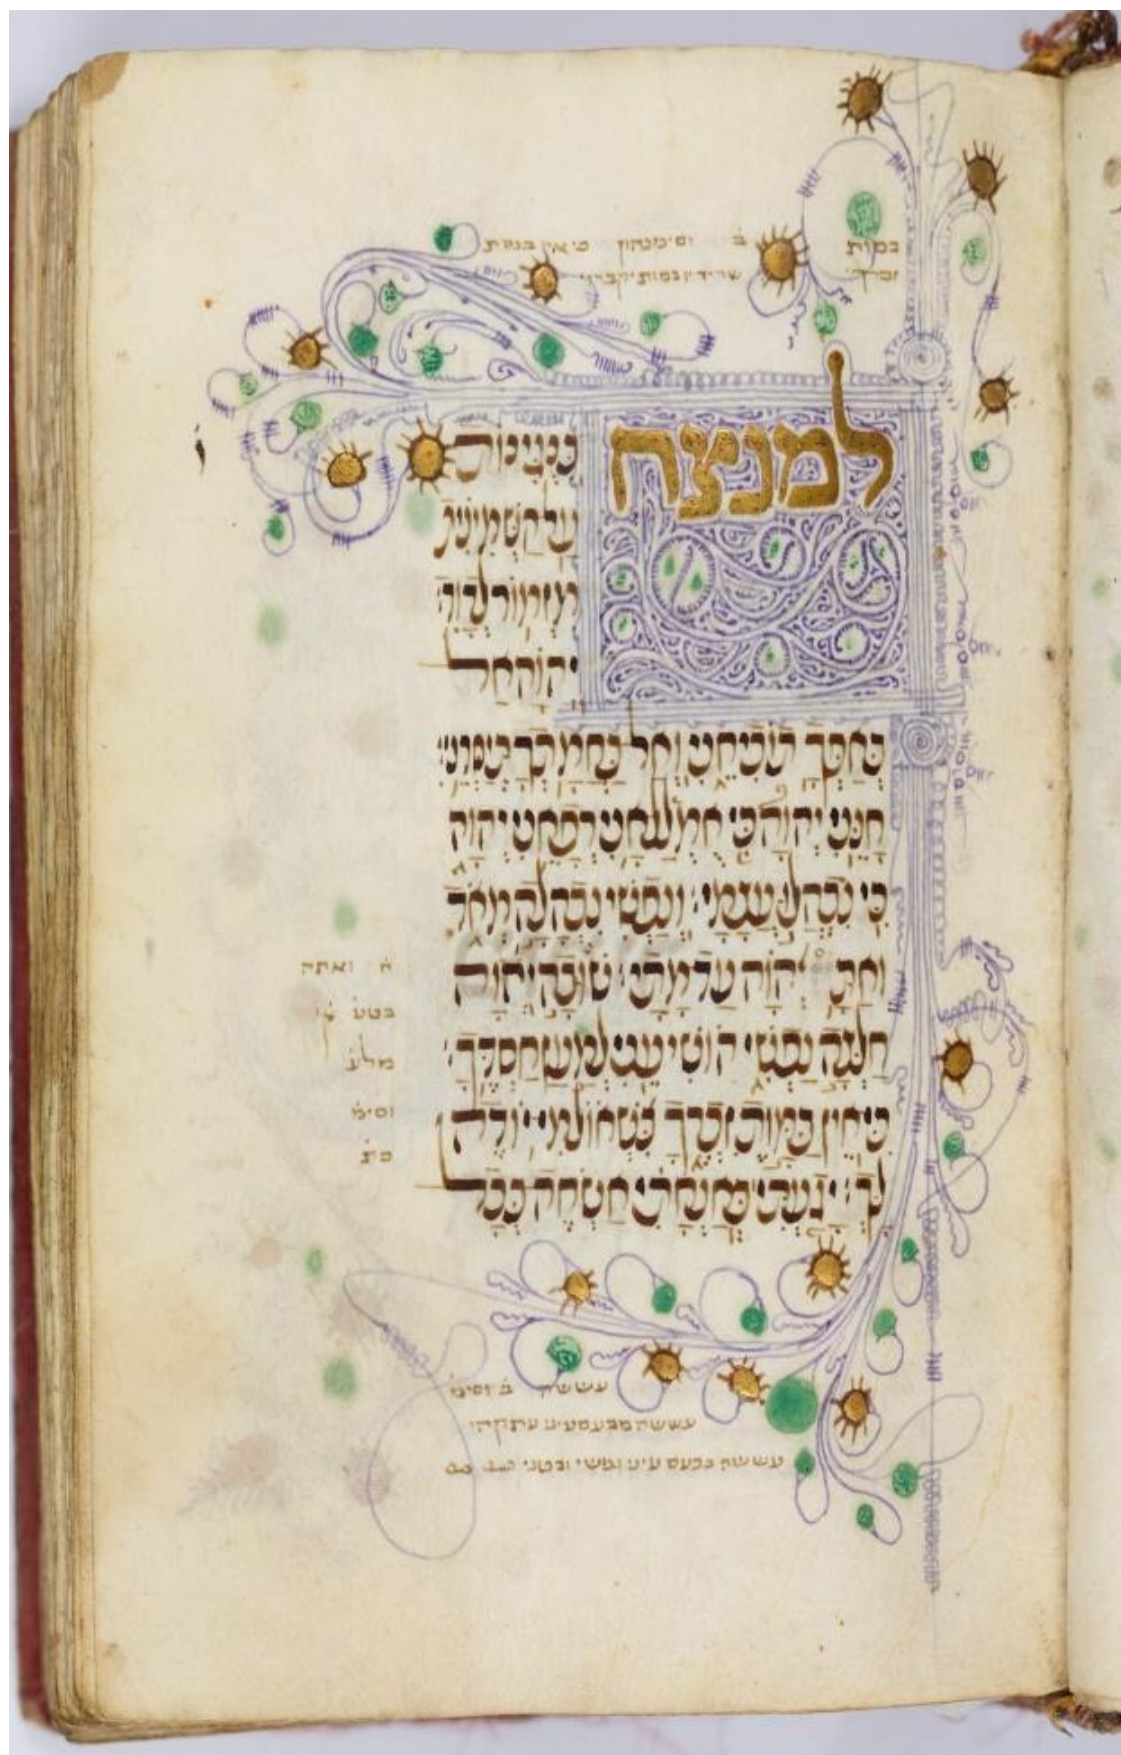 במות ב וסימנהון כי אין במות
זכרך שרידיו במות יקברו
למנצח
בנגינות
על השמינית
מזמור לדוד
יהוה אל
באפך תוכיחני ואל בחמתך תיסרני
חנני יהוה כי אמלל אני רפאני יהוה
כי נבהלו עצמי ונפשי נבהלה מאד
ואת יהוה עד מתי שובה יהוה
חלצה נפשי הושיעני למען חסדך
כי אין במות זכרך בשאול מי יודה
לך יגעתי באנחתי אשחה בכל
ואתה
בטע
מלע
וסימ
עששה ב וסימ
עששה מכעס עיני עתקה
עששה בכעס עיני נפשי ובטני